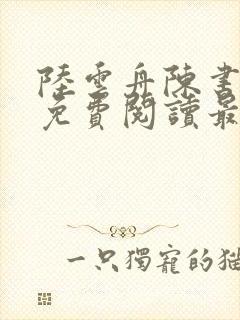 陸雲舟陳書
免費閱讀最
一只獨寵的貓